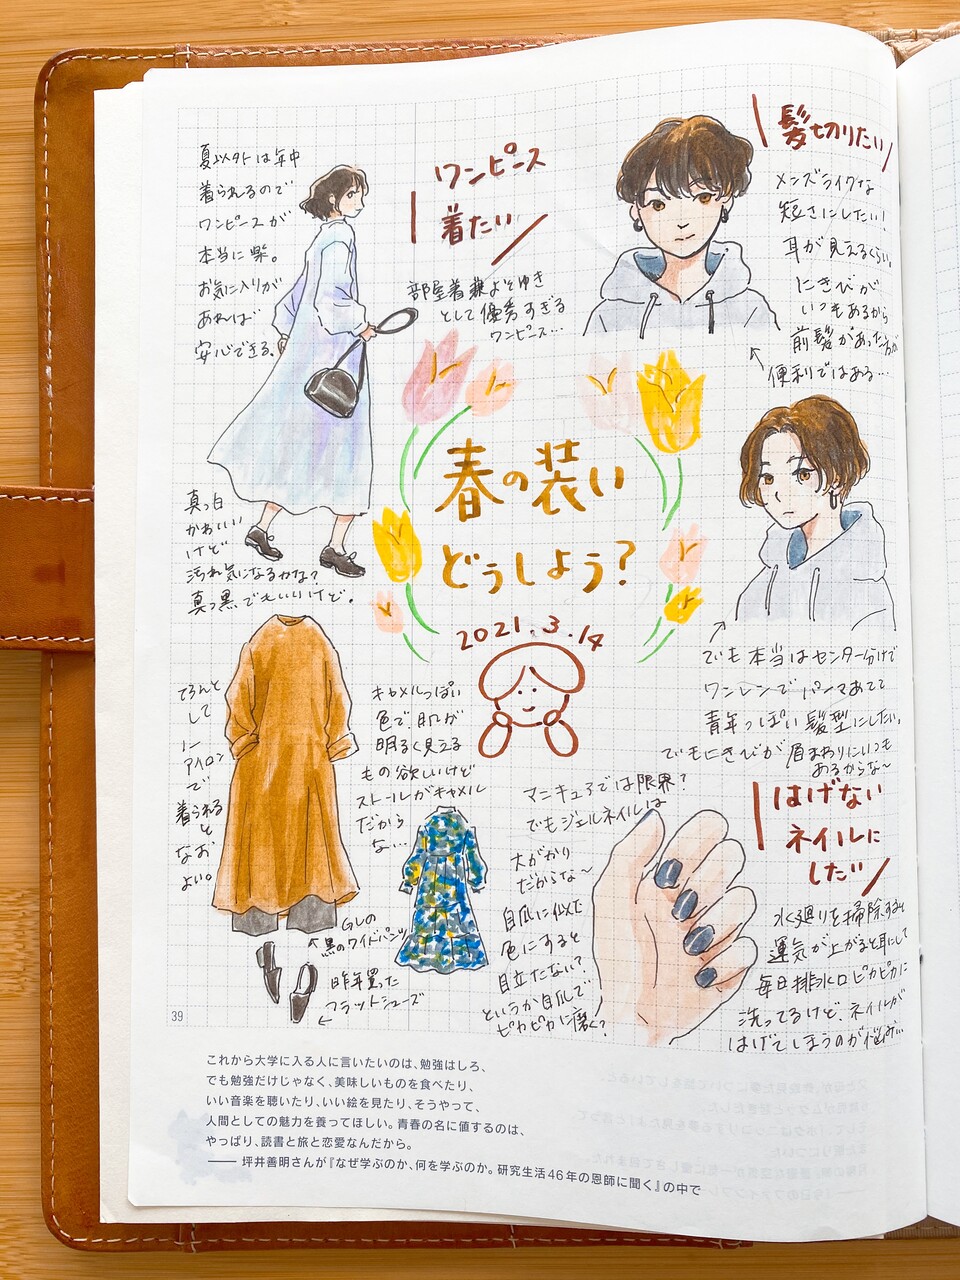 夏以外は年中
着られるので
ワンピースが
本当に楽。
お気に入りが
あれば
安心できる。
ワンピース
着たい
部屋着兼よそゆき
として優秀すぎる
ワンピース…
髪切りたい
メンズライクな
短さにしたい!
耳が見えるくらい。
にきびが
いつもあるから
前髪があった方が
便利ではある…
春の装い
どうしよう?
2021.3.14
真っ白
かわいい
けど
汚れ気になるかな?
真っ黒でもいいけど。
でも本当はセンター分けで
ワンレンでパーマあてて
青年っぽい髪型にしたい。
でもにきびが眉まわりにいつも
あるからな〜
てろんと
して
ノー
アイロン
で
着られる
と
なお
よい。
キャメルっぽい
色で肌が
明るく見える
もの欲しいけど
ストールがキャメル
だから
ない…
GLの
黒のワイドパンツ
昨年買った
フラットシューズ
はげない
ネイルに
したい
マニキュアでは限界?
でもジェルネイルは
大がかり
だからな〜
自爪に似た
色にすると
目立たない?
というか自爪で
ピカピカに磨く?
水廻りを掃除すると
運気が上がると耳にして
毎日排水口ピカピカに
洗ってるけど、ネイルが
はげてしまうのが悩み…
39
これから大学に入る人に言いたいのは、勉強はしろ、
でも勉強だけじゃなく、美味しいものを食べたり、
いい音楽を聴いたり、いい絵を見たり、そうやって、
人間としての魅力を養ってほしい。青春の名に値するのは、
やっぱり、読書と旅と恋愛なんだから。
―― 坪井善明さんが『なぜ学ぶのか、何を学ぶのか。研究生活46年の恩師に聞く』の中で